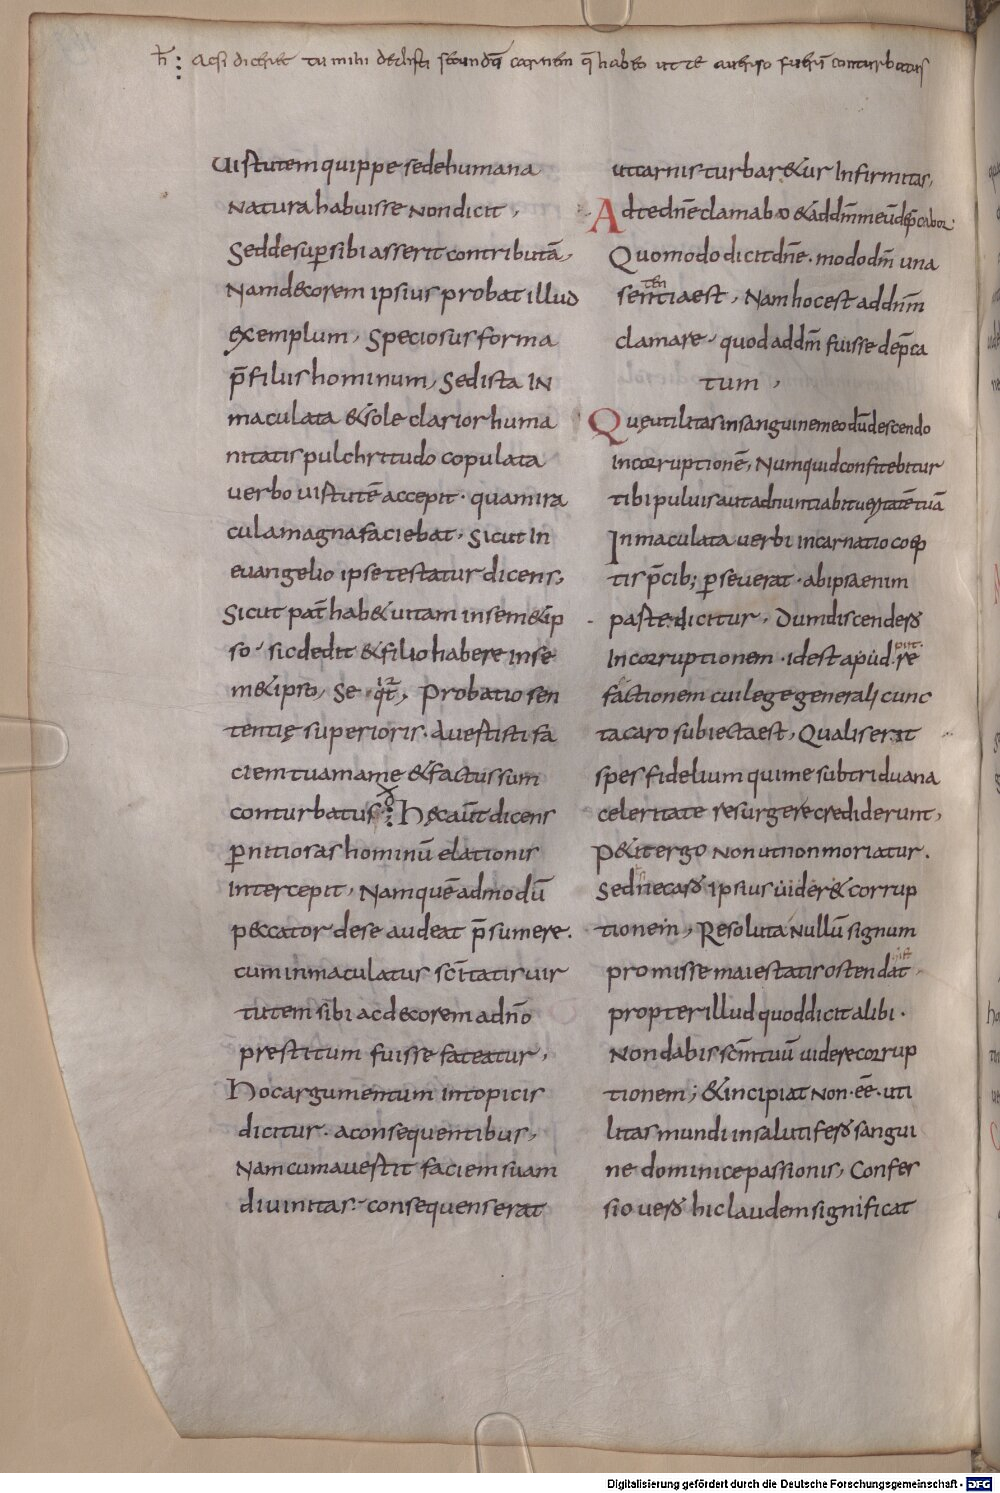 h̄ acsi diceret tu mihi dedisti secundū carnem q̄ habeo ut te auerso fuerī conturbatus
uirtutem quippe se de humana
natura habuisse non dicit,
Sed desuꝑ sibi asserit contributā,
Nam decorem ipsius probat illud
exemplum, Speciosus forma
p̄ filiis hominum, Sed ista In
maculata & sole clarior huma
nitatis pulchritudo copulata
uerbo uirtutē accepit. qua mira
cula magna faciebat, Sicut In
euangelio ipse testatur dicens,
Sicut pat̄ hab& uitam in sem&ip
so. sic dedit & filio habere in se
m&ipso, Se qt̄, Probatio sen
tentię superioris. auertisti fa
ciem tuam a me & factus sum
conturbatus Hęc aūt dicens
ꝑnitiosas hominū elationis
intercepit, Nam quēadmodū
peccator de se audeat p̄sumere.
cum inmaculatus sc̄itatis uir
tutem sibi ac decorem a dn̄o
prestitum fuisse fateatur,
Hoc argumentum in topicis
dicitur. a consequentibus,
Nam cum auertit faciem suam
diuinitas. consequens erat
ut carnis turbar&ur Infirmitas,
Ad te dn̄e clamabo & ad dm̄ meū dep̄cabor
Quomodo dicit dn̄e. modo dm̄ una
sententia est, Nam hoc est ad dnm̄
clamare. quod ad dm̄ fuisse dep̄ca
tum,
Quę utilitas in sanguine meo dū descendo
in corruptionē, Numquid confitebitur
tibi puluis aut adnuntiabit ueritatē tuā
Inmaculata uerbi incarnatio coep
tis p̄cib; ꝑseuerat. ab ipsa enim
parte dicitur, Dum discendero
In corruptionem. id est apud putre
factionem cui lege generali cunc
ta caro subiecta est, Qualis erit
spes fidelium qui me sub triduana
celeritate resurgere crediderunt,
P&it ergo non ut non moriatur.
Sed ne caro ipsius uider& corrup
tionem, Resoluta nullū signum
promisse maiestatis ostendat
propter illud quod dicit alibi.
Non dabis sc̄m tuū uidere corrup
tionem; & incipiat non ēē. uti
litas mundi in salutifero sangui
ne dominice passionis, Confes
sio uero hic laudem significat
Digitalisierung gefördert durch die Deutsche Forschungsgemeinschaft - DFG